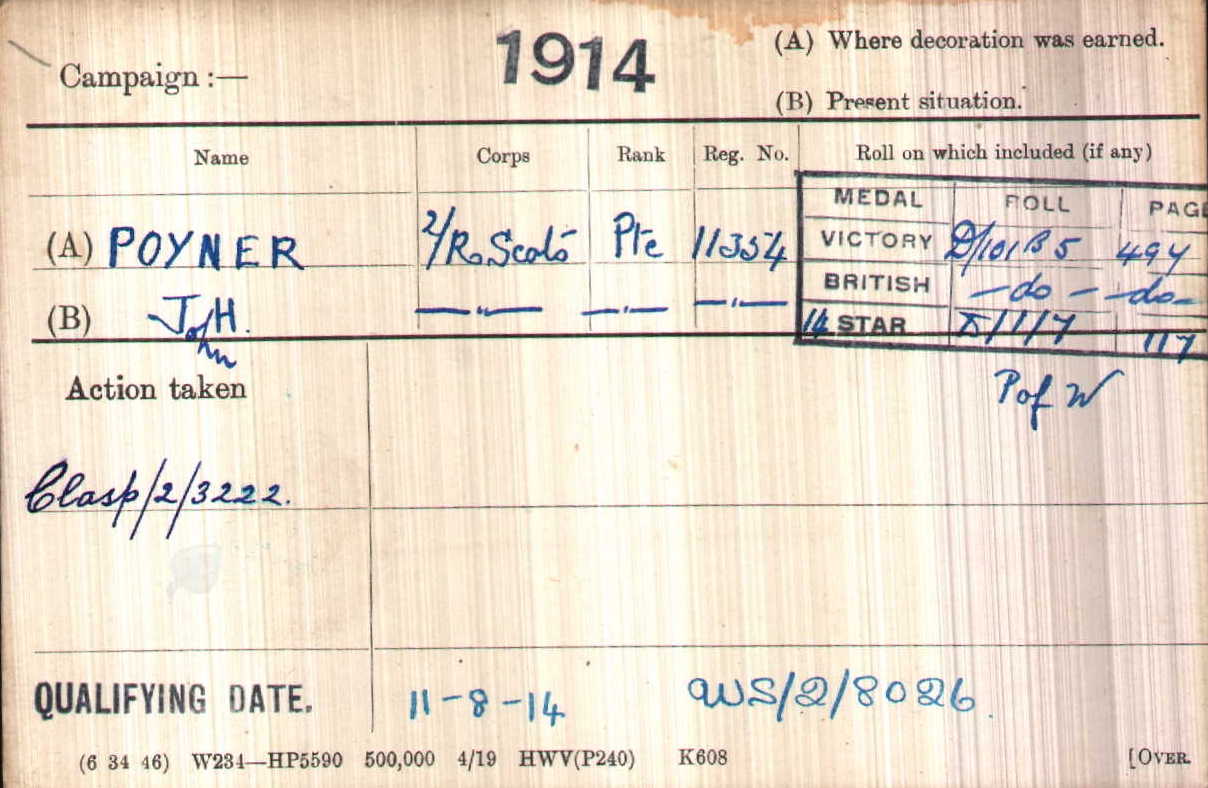 Campaign :— 1914 (A) Where decoration was earned.
(B) Present situation.
Name Corps Rank Reg. No. Roll on which included (if any)
MEDAL ROLL PAGE
(A) POYNER 2/R. Scots Pte 11354 VICTORY D/101 B 5 494
(B) J. H. —"— —"— —"— BRITISH —do— —do—
John 14 STAR D/1/7 117
Action taken P of W
Clasp/2/3222.
QUALIFYING DATE. 11-8-14 WS/2/8026.
(6 34 46) W234—HP5590 500,000 4/19 HWV(P240) K608 [OVER.